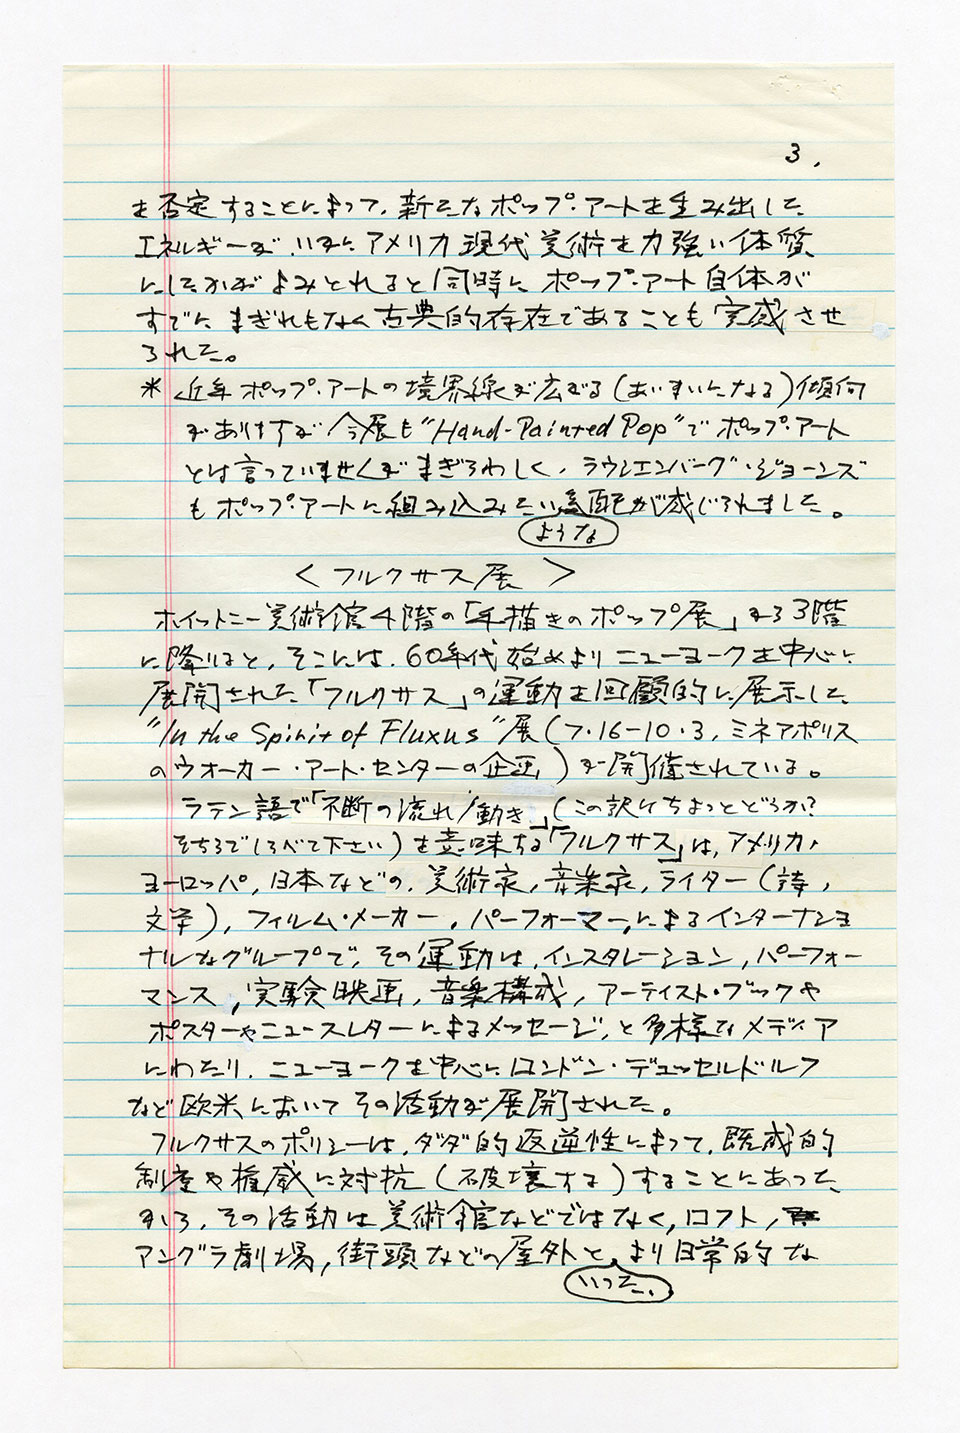 3.
を否定することによって、新たなポップ・アートを生み出した
エネルギーが、いかにアメリカ現代美術を力強い体質
にしたかがよみとれると同時に ポップ・アート自体が
すでに まぎれもなく古典的存在であることも 実感させ
られた。
* 近年 ポップ・アートの境界線が広がる(あいまいになる)傾向
がありますが 今展も“Hand-Painted Pop”で ポップ・アート
とは言っていませんが まぎらわしく、ラウシェンバーグ・ジョーンズ
もポップ・アートに組み込みたい気配が感じられました。
ような
<フルクサス展>
ホイットニー美術館4階の「手描きのポップ展」から3階
に降りると、そこには、60年代始めよりニューヨークを中心に
展開された「フルクサス」の運動を回顧的に展示した
“In the Spirit of Fluxus”展(7・16-10・3, ミネアポリス
のウオーカー・アート・センターの企画)が開催されている。
ラテン語で「不断の流れ/動き」(この訳けちょっとどうか?
そちらでしらべて下さい)を意味する「フルクサス」は、アメリカ、
ヨーロッパ、日本などの、美術家、音楽家、ライター(詩、
文学)、フィルム・メーカー、パーフォーマーによるインターナショ
ナルなグループで、その運動は、インスタレーション、パーフォー
マンス、実験映画、音楽構成、アーティスト・ブックや
ポスターやニュースレターによるメッセージ、と多様なメディア
にわたり、ニューヨークを中心にロンドン・デュッセルドルフ
など欧米においてその活動が展開された。
フルクサスのポリシーは、ダダ的返逆性によって、既成的
制度や権威に対抗(破壊する)することにあった
から、その活動は美術館などではなく、ロフト、
アングラ劇場、街頭などの屋外と、より日常的な
いった、